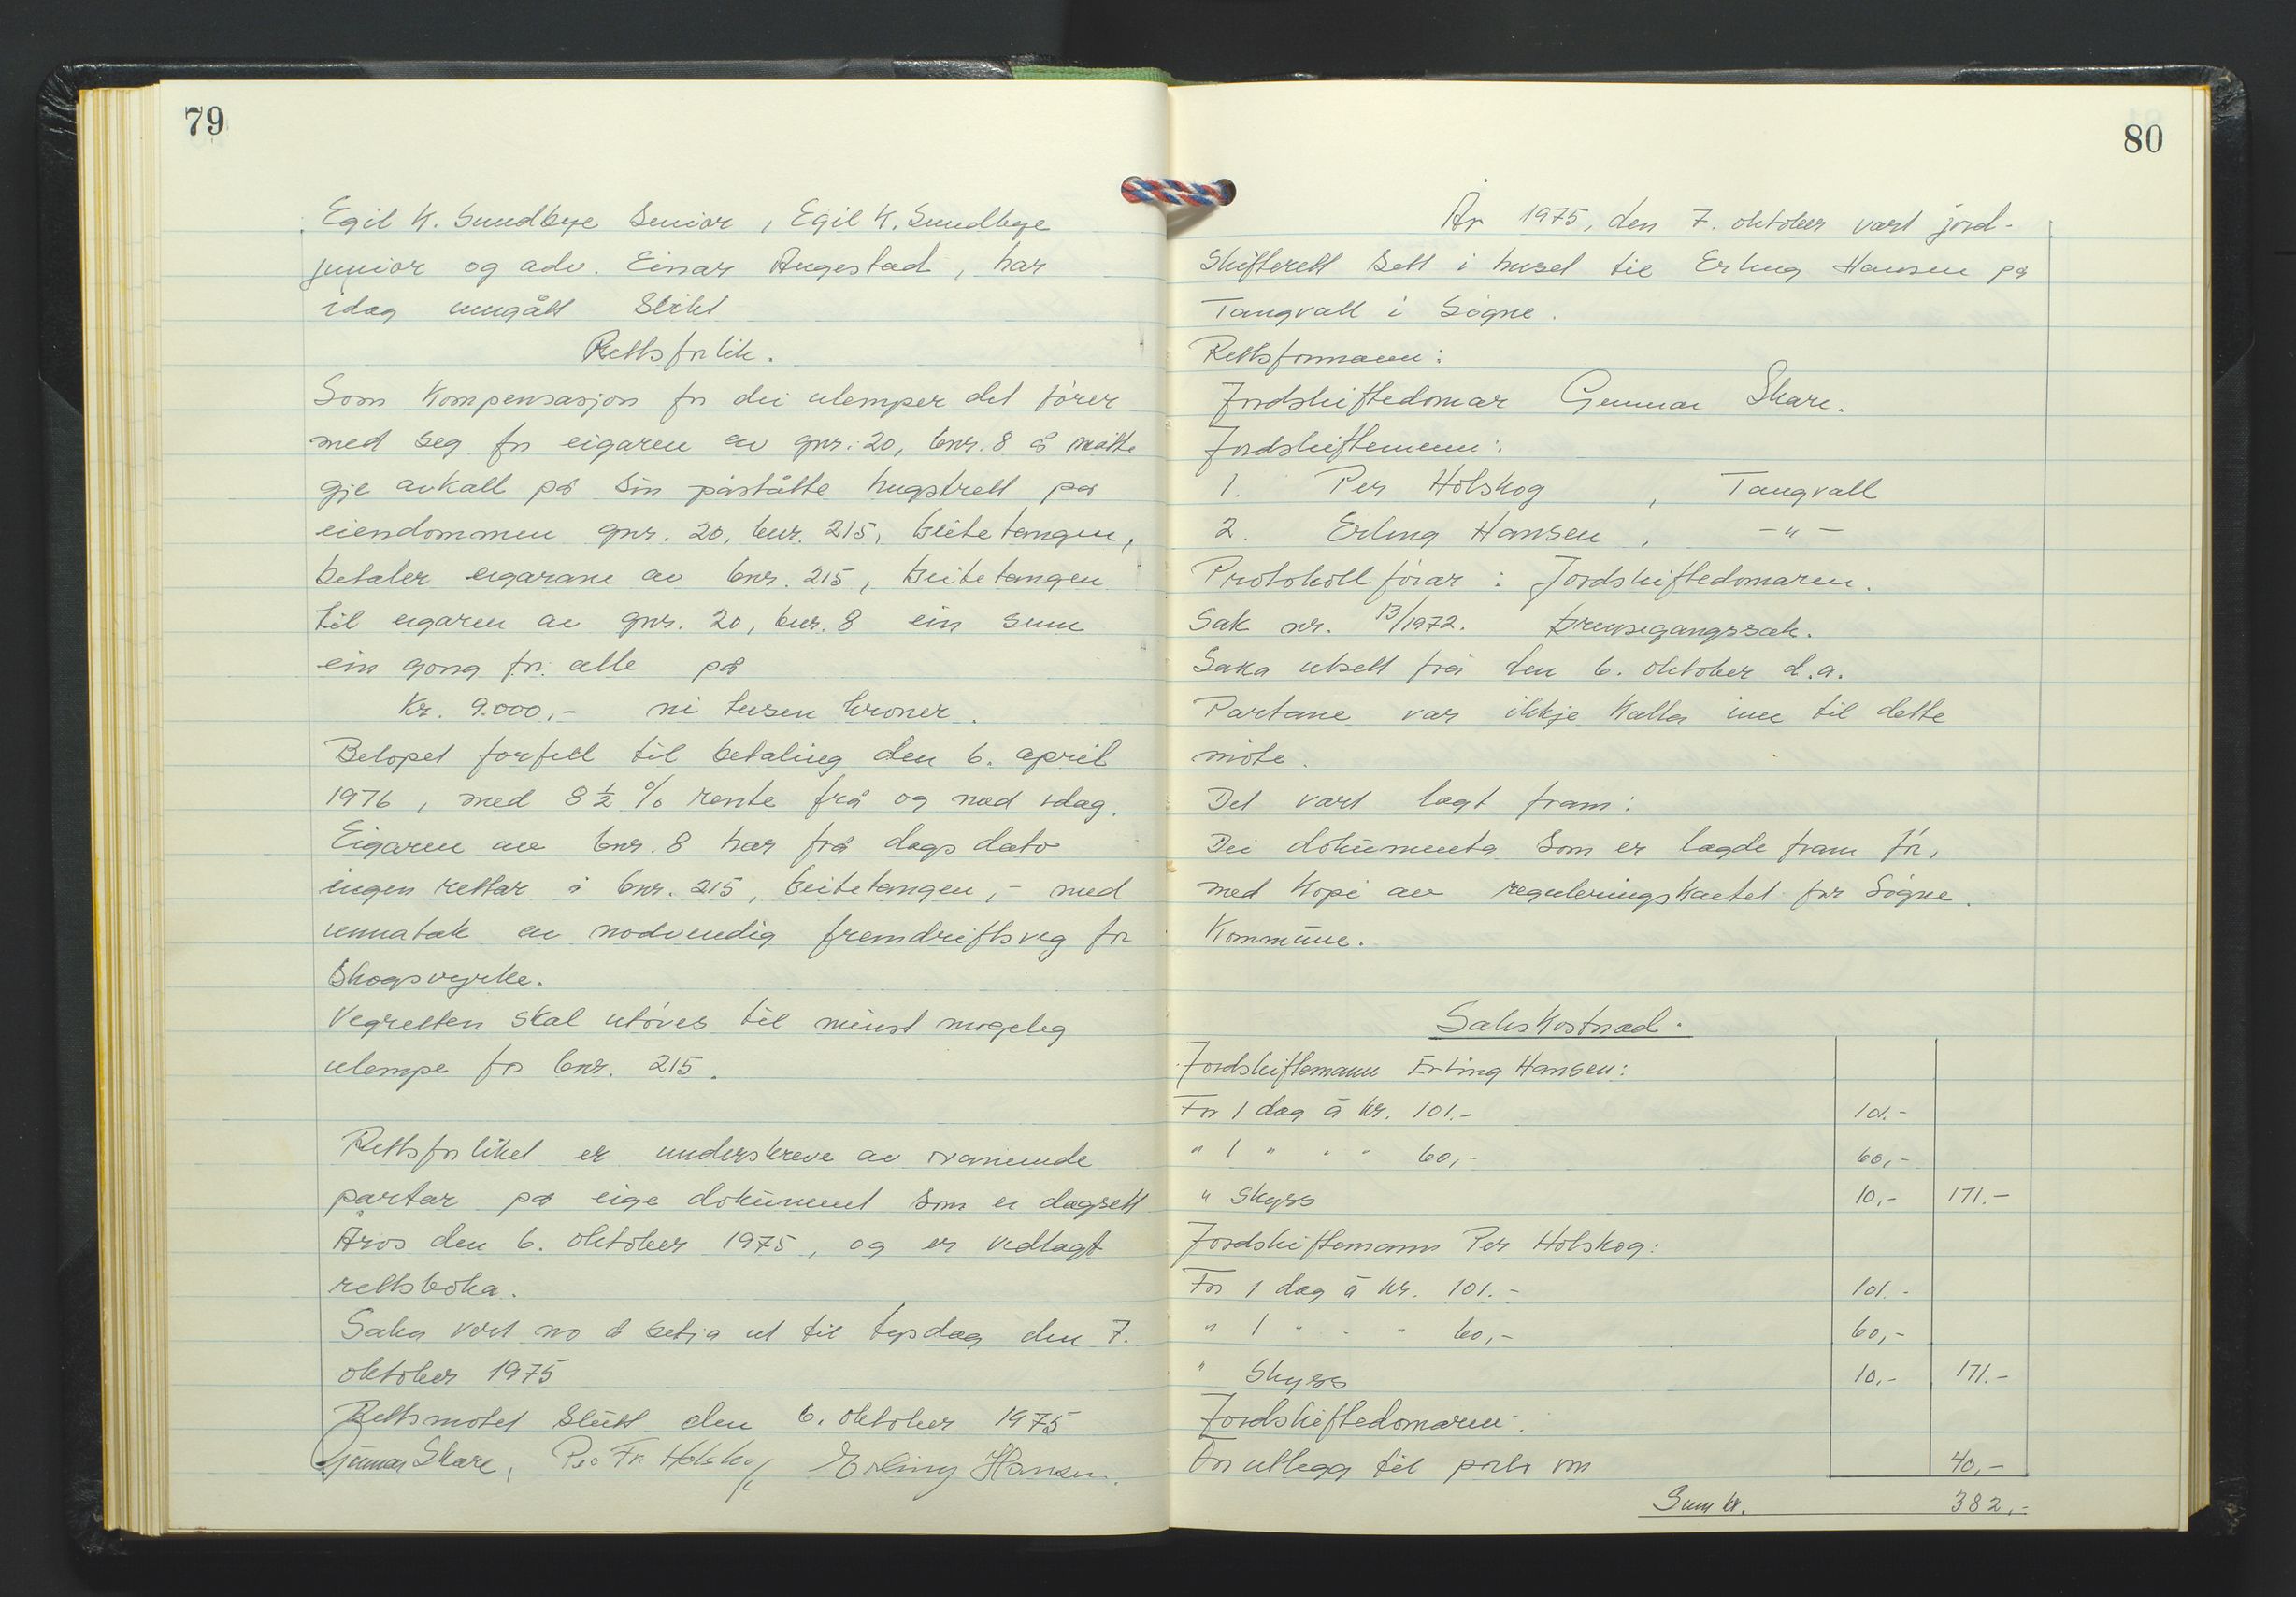 79
Egil K. Sundbye Senior, Egil K. Sundbye
junior og adv. Einar Angestad, har
idag inngått slikt
Rettsforlik.
Som kompensasjon for dei ulemper det fører
med seg for eigaren av gnr. 20, bnr. 8 å måtte
gje avkall på sin påståtte hugstrett på
eiendommen gnr. 20, bnr. 215, Geitetangen,
betaler eigarane av bnr. 215, Geitetangen
til eigaren av gnr. 20, bnr. 8 ein sum
ein gong for alle på
Kr. 9.000,- ni tusen kroner.
Beløpet forfell til betaling den 6. april
1976, med 8 ½ % rente frå og med idag.
Eigaren av bnr. 8 har frå dags dato
ingen rettar i bnr. 215, Geitetangen, - med
unnatak av nødvendig fremdriftsveg for
skogsvyrke.
Vegretten skal utøves til minst mogeleg
ulempe for bnr. 215.
Rettsforliket er underskreve av ovannemnde
partar på eige dokument som er dagsett
Åros den 6. oktober 1975, og er vedlagt
rettsboka.
Saka vert no å setja ut til tysdag den 7.
oktober 1975
Rettsmøtet slutt den 6. oktober 1975
Gunnar Skare, Per Fr. Holskog Erling Hansen.
80
År 1975, den 7. oktober vart jord-
skifterett sett i huset til Erling Hansen på
Tangvall i Søgne.
Rettsformann:
Jordskiftedomar Gunnar Skare.
Jordskiftemenn:
1. Per Holskog, Tangvall
2. Erling Hansen, -"-
Protokollførar: Jordskiftedomaren.
Sak nr. 13/1972. Grensegangssak.
Saka utsett frå den 6. oktober d.a.
Partane var ikkje kalla inn til dette
møte.
Det vart lagt fram:
Dei dokumenta som er lagde fram før,
med kopi av reguleringskartet for Søgne
Kommune.
Sakskostnad.
Jordskiftemann Erling Hansen:
For 1 dag á kr. 101.- 101.-
" 1 " " " 60,- 60,-
" Skyss 10,- 171.-
Jordskiftemann Per Holskog:
For 1 dag á kr. 101.- 101.-
" 1 " " " 60,- 60,-
" Skyss 10,- 171.-
Jordskiftedomaren:
For utlegg til porto 40,-
Sum kr. 382,-